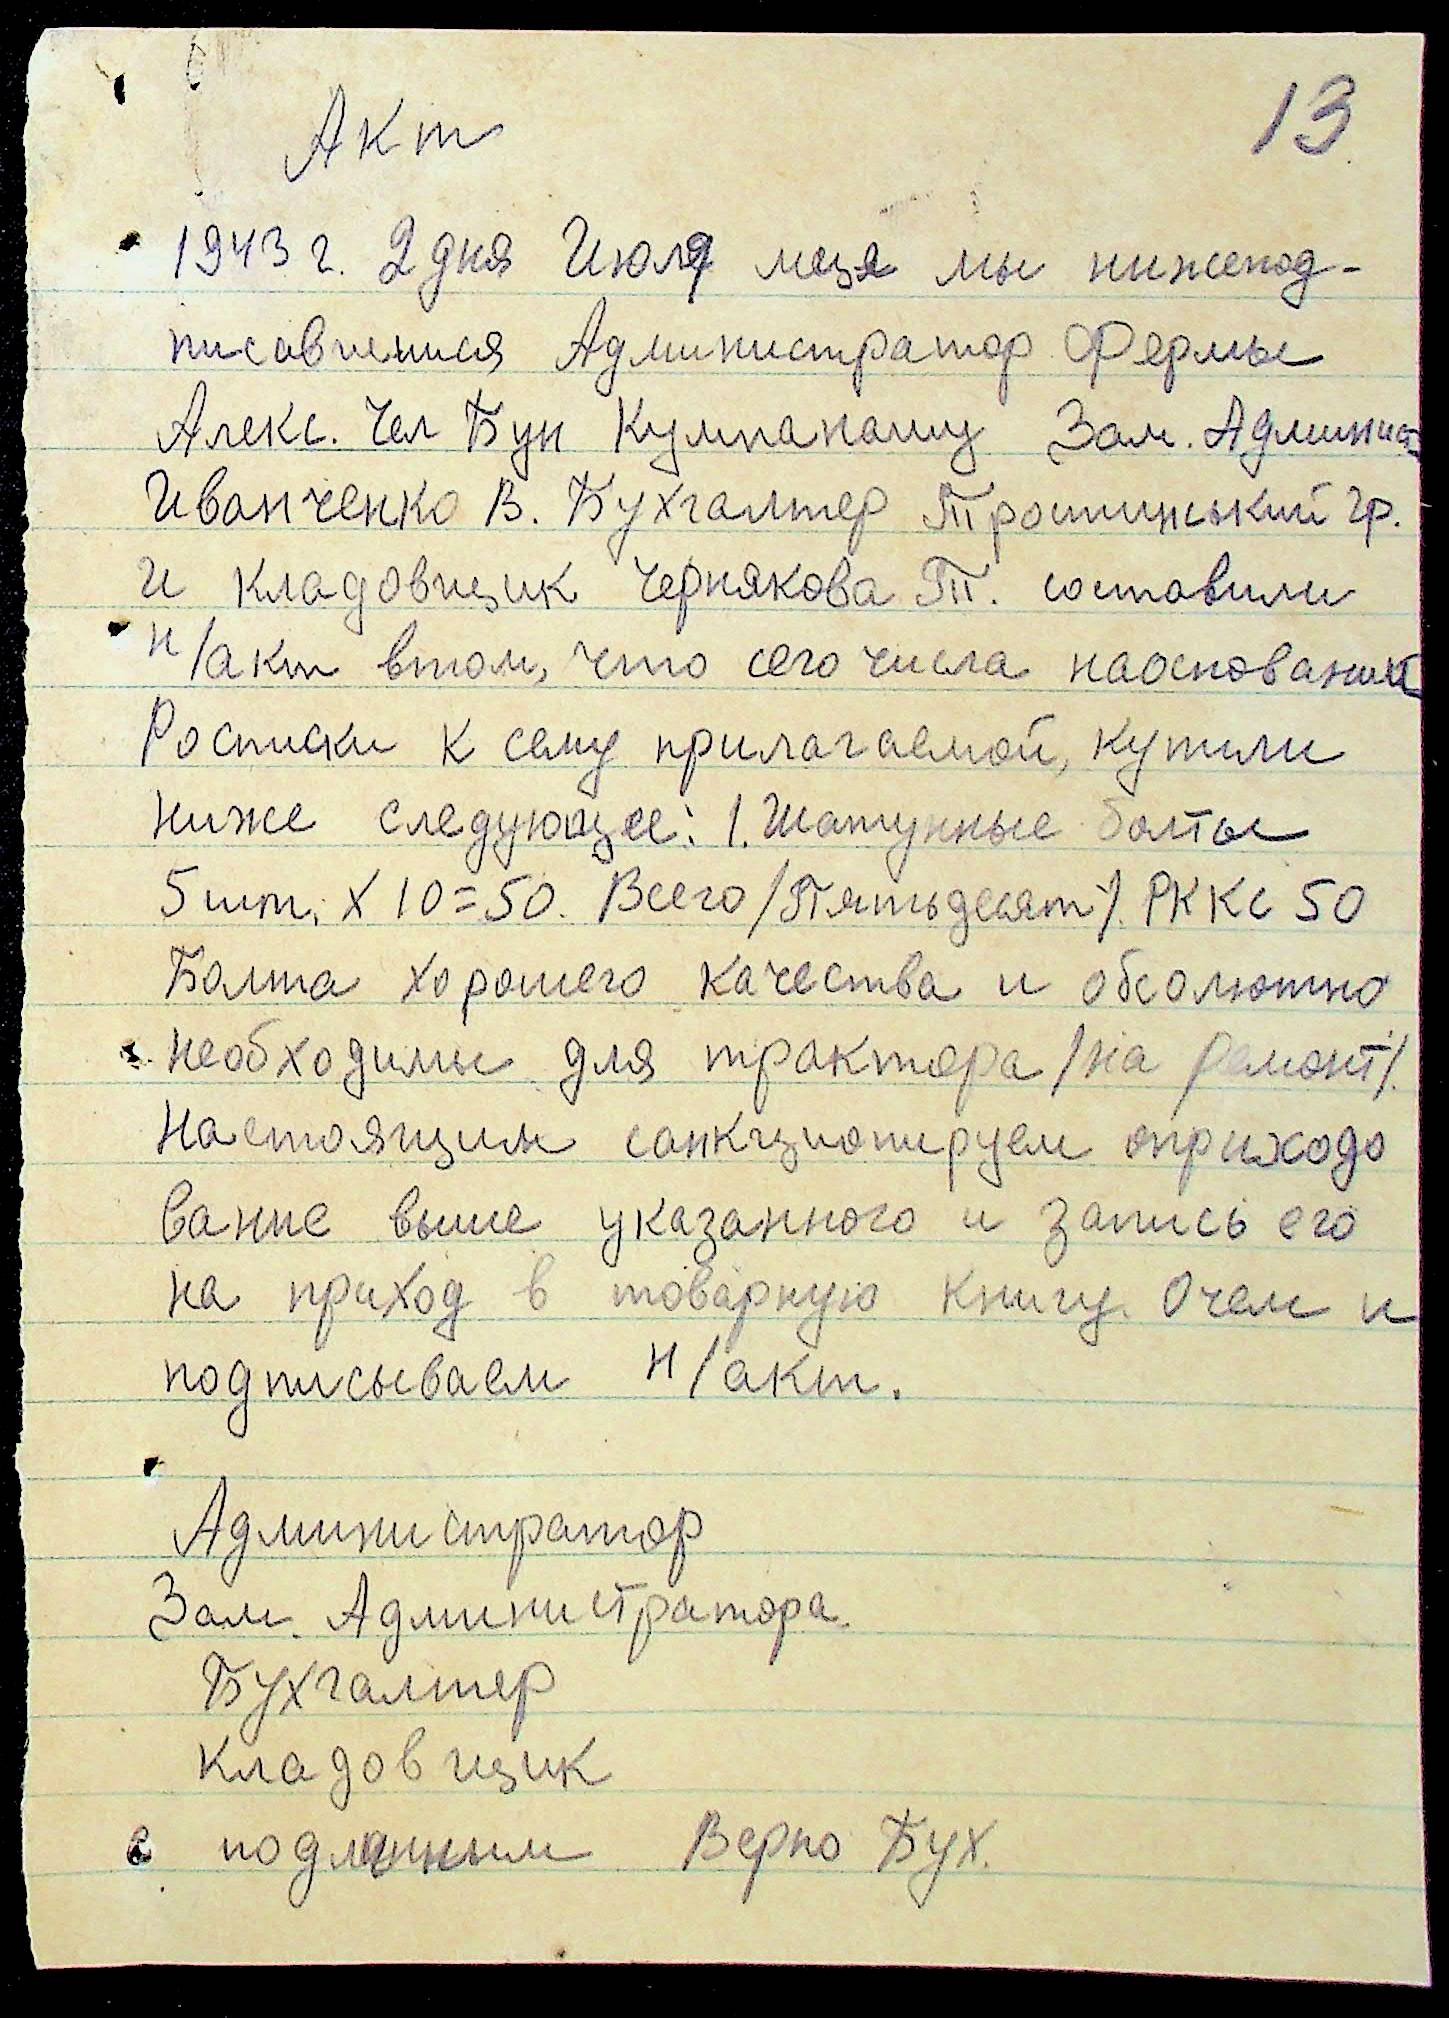 13
Акт
1943 г. 2 дня Июля м-ця мы нижепод-
писавшиися Администратор Фермы
Алекс. Чел Бун Кумпанашу Зам. Админист
Иванченко В. Бухгалтер Тростинський Гр.
и кладовщик Чернякова Т. составили
н/акт втом, что сего числа наоснований
Росписки к сему прилагаемой, купили
ниже следующее: 1. Шатунные болты
5 шт. х 10=50. Всего /Пятьдесят/. РККС 50
Болта хорошего качества и обсолютно
необходимы для трактора /на ремонт/.
Настоящим санкционируем оприходо
вание выше указанного и запись его
на приход в товарную книгу. Очем и
подписываем н/акт.
Администратор
Зам. Администратора.
Бухгалтер
Кладовщик
с подлинным Верно Бух.